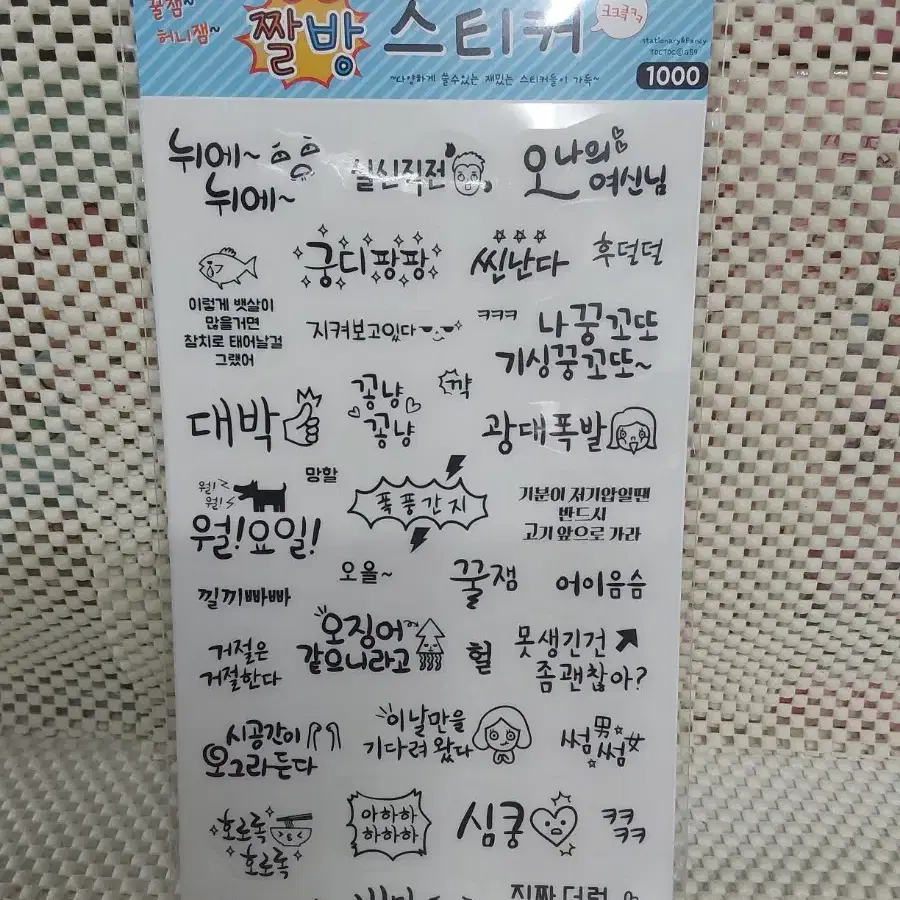 꿀잼~
허니잼~
짤방 스티커
ㅋㅋㅋㅋ
stationary&Fancy
~다양하게 쓸수있는 재밌는 스티커들이 가득~
1000
뉘에~
뉘에~
실신직전
오 나의
여신님
궁디팡팡
씐난다
후덜덜
이렇게 뱃살이
많을거면
참치로 태어날걸
그랬어
지켜보고있다
ㅋㅋㅋ
나 꿍꼬또
기싱꿍꼬또~
대박
꽁냥
꽁냥
꺅
광대폭발
월!
월!
월!요일!
망할
폭풍간지
기분이 저기압일땐
반드시
고기 앞으로 가라
낄끼빠빠
오올~
꿀잼
어이음슴
거절은
거절한다
오징어
같으니라고
헐
못생긴건
좀괜찮아?
시공간이
오그라든다
이날만을
기다려 왔다
썸男
썸女
호로록
호로록
아하하
하하하
심쿵
ㅋㅋ
ㅋㅋ
진짜 더럽